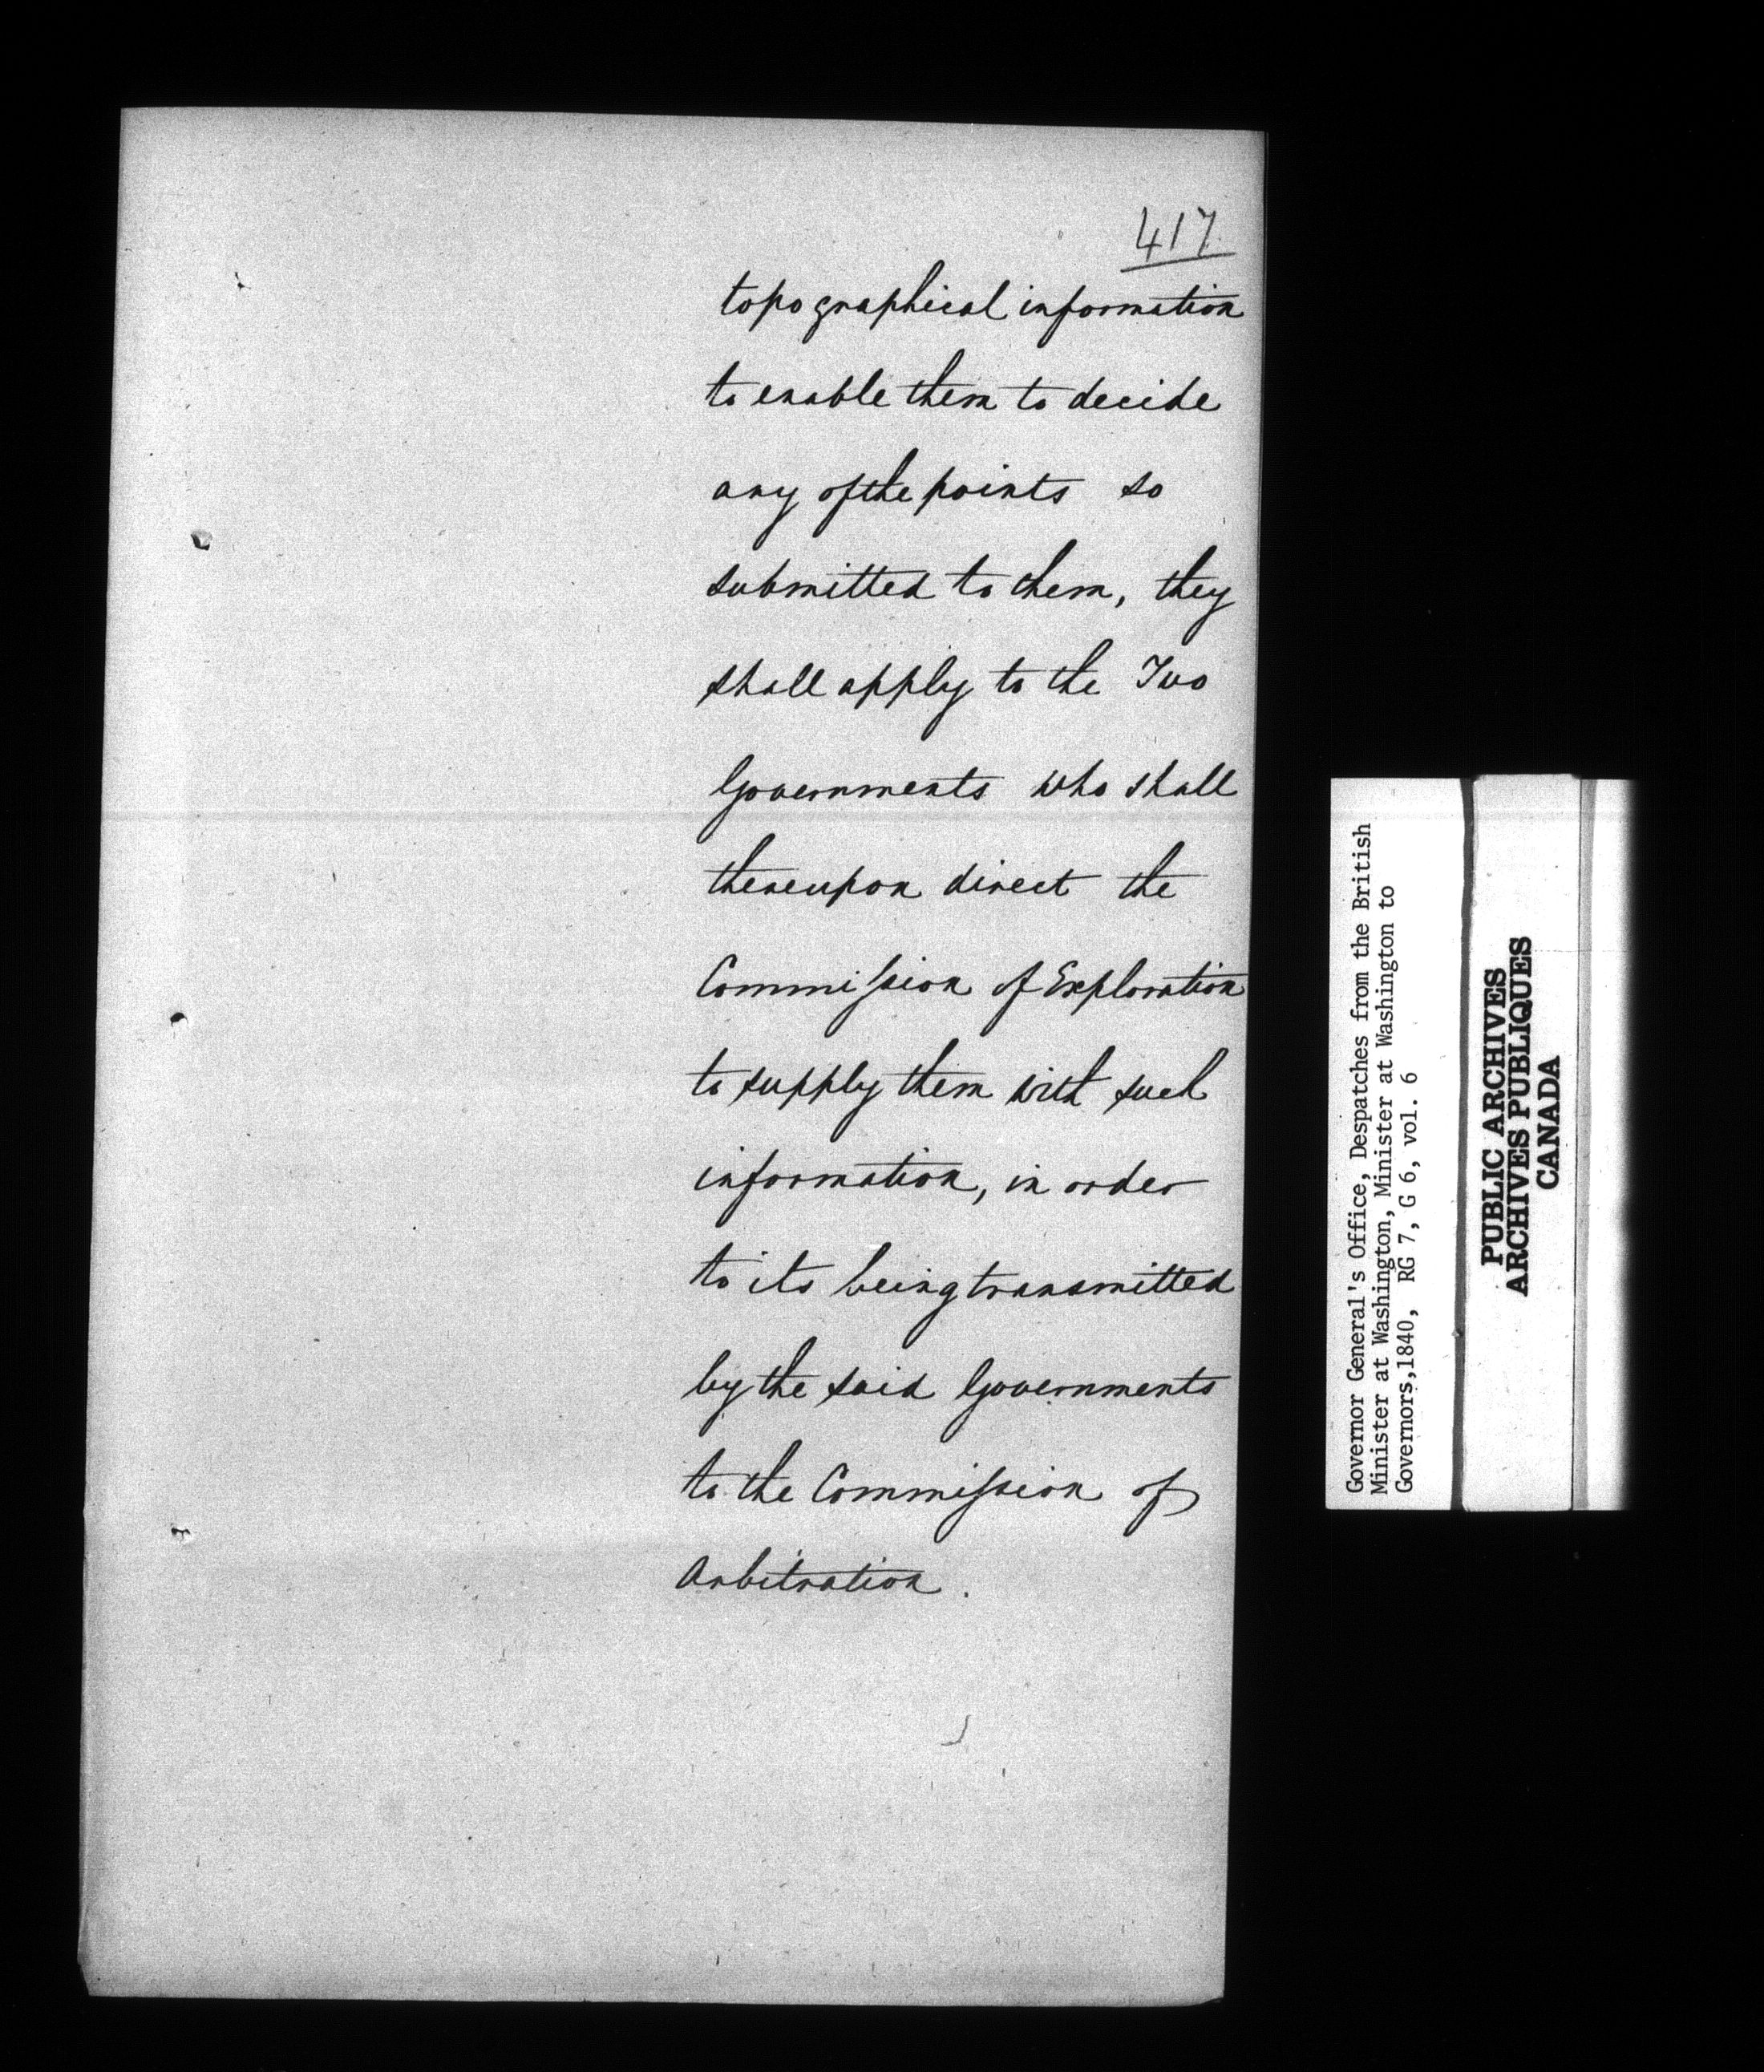 417
topographical information
to enable them to decide
any of the points so
submitted to them, they
shall apply to the Two
Governments who shall
thereupon direct the
Commission of Exploration
to supply them with such
information, in order
to its being transmitted
by the said Governments
to the Commission of
Arbitration.
Governor General's Office, Despatches from the British
Minister at Washington, Minister at Washington to
Governors,1840, RG 7, G 6, vol. 6
PUBLIC ARCHIVES
ARCHIVES PUBLIQUES
CANADA